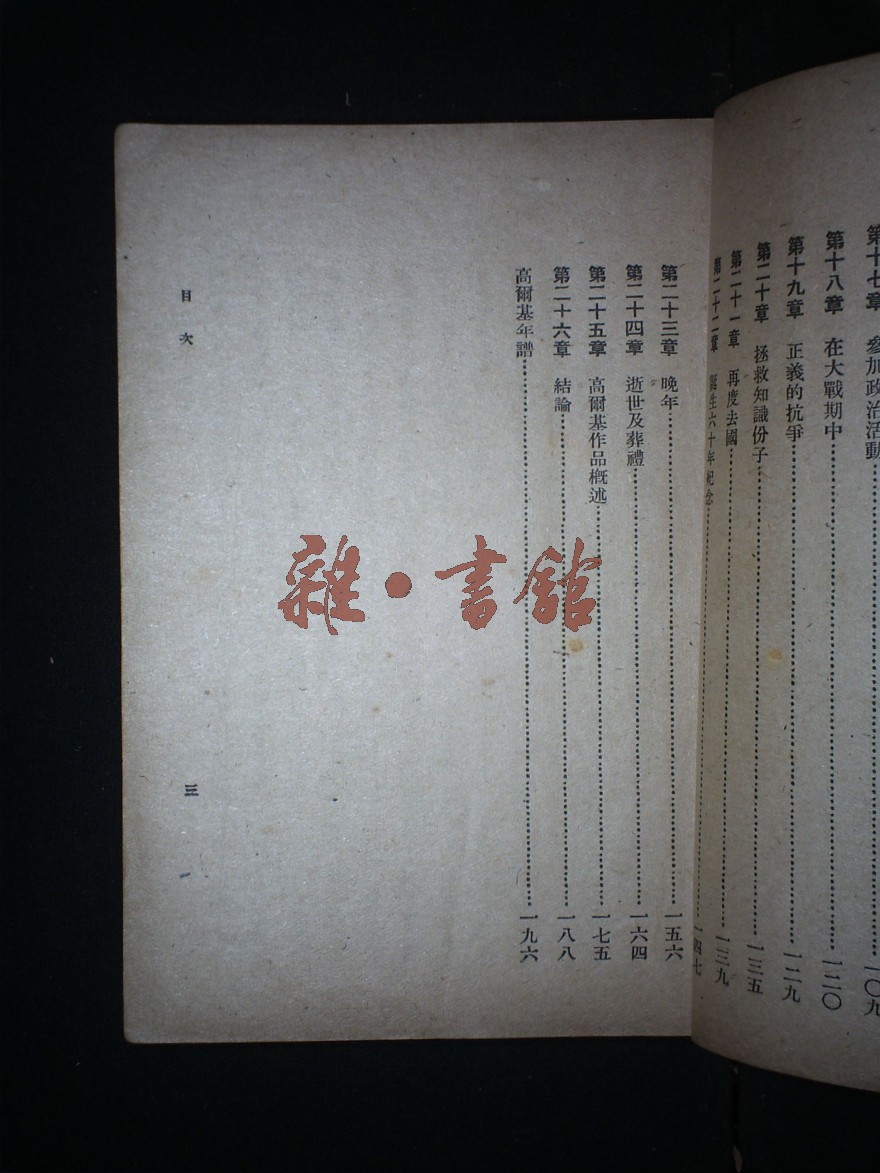 第十七章　參加政治活動……一〇九
第十八章　在大戰期中……一二〇
第十九章　正義的抗爭……一二九
第二十章　拯救知識份子……一三五
第二十一章　再度去國……一三九
第二十二章　誕生六十年紀念……一四七
第二十三章　晚年……一五六
第二十四章　逝世及葬禮……一六四
第二十五章　高爾基作品概述……一七五
第二十六章　結論……一八八
高爾基年譜……一九六
目次
三
雜·書館